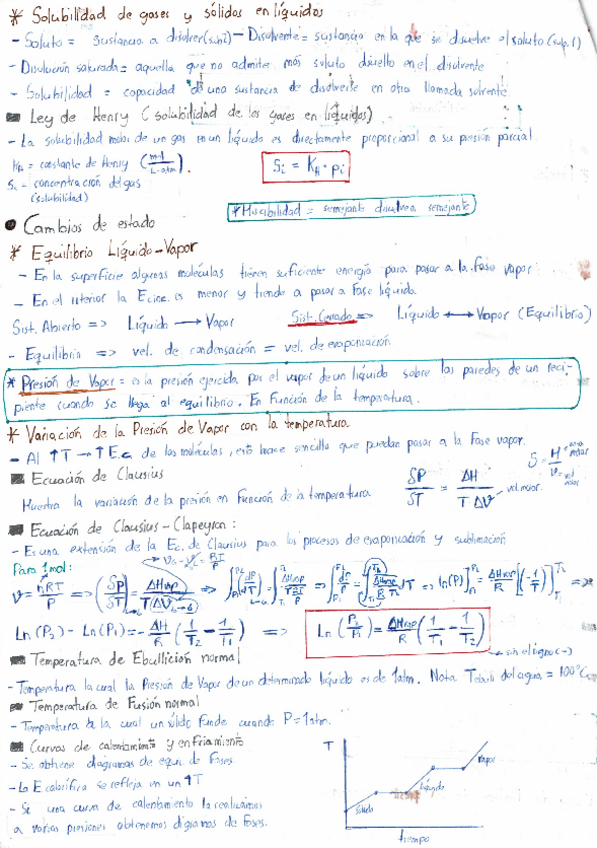 * Solubilidad de gases y sólidos en líquidos
- Soluto = sustancia a disolver (subi) - Disolvente = sustancia en la que se disuelve el soluto (subp. 1)
- Disolución saturada = aquella que no admite más soluto disuelto en el disolvente
- Solubilidad = capacidad de una sustancia de disolverse en otra llamada solvente
Ley de Henry (solubilidad de los gases en líquidos)
- La solubilidad molar de un gas en un líquido es directamente proporcional a su presión parcial
KH = constante de Henry (mol/L·atm). Si = KH · pi
Si - concentración del gas
(solubilidad)
* Miscibilidad = semejante disuelve a semejante
Cambios de estado
* Equilibrio Líquido-Vapor
- En la superficie algunas moléculas tienen suficiente energía para pasar a la fase vapor
- En el interior la Ecine. es menor y tiende a pasar a fase líquida.
Sist. Abierto => Líquido → Vapor Sist. Cerrado => Líquido ↔ Vapor (Equilibrio)
- Equilibrio => vel. de condensación = vel. de evaporación
* Presión de Vapor = es la presión ejercida por el vapor de un líquido sobre las paredes de un reci-
piente cuando se llega al equilibrio. En Función de la temperatura.
* Variación de la Presión de Vapor con la temperatura
- Al ↑T → ↑E.c. de las moléculas, esto hace sencillo que puedan pasar a la Fase vapor.
Ecuación de Clausius
Muestra la variación de la presión en Función de la temperatura δP/δT = ΔH/TΔV vol. molar
Ecuación de Clausius-Clapeyron:
- Es una extensión de la Ec. de Clausius para los procesos de evaporación y sublimación
Para 1 mol:
V = nRT/P => (δP/δT) = ΔHvap/T(ΔV)
Ln(P2) - Ln(P1) = -ΔH/R (1/T2 - 1/T1) => Ln(P2/P1) = ΔHvap/R (1/T1 - 1/T2)
sin el signo (-)
Temperatura de Ebullición normal
- Temperatura la cual la Presión de Vapor de un determinado líquido es de 1atm. Nota Tebull del agua = 100ºC
Temperatura de Fusión normal
- Temperatura a la cual un sólido funde cuando P = 1atm.
Curvas de calentamiento y enfriamiento
- Se obtiene diagramas de equi. de Fases
- La E calorífica se refleja en un ↑T
- Si una curva de calentamiento la realizamos
a varias presiones obtenemos digramas de fases.
T
vapor
líquido
sólido
tiempo